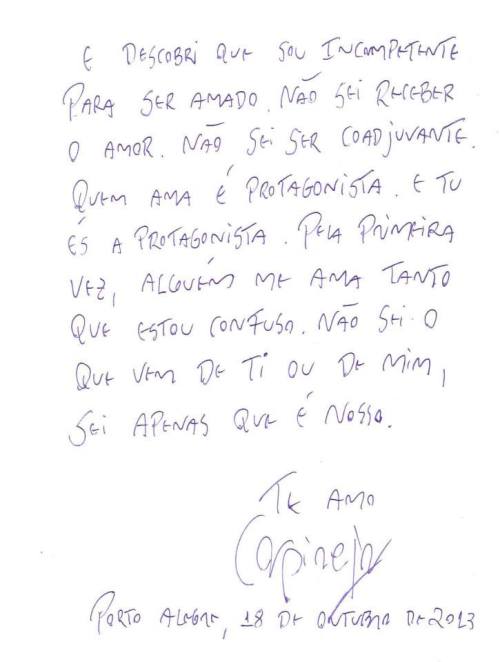 E DESCOBRI QUE SOU INCOMPETENTE
PARA SER AMADO. NÃO SEI RECEBER
O AMOR. NÃO SEI SER COADJUVANTE.
QUEM AMA É PROTAGONISTA. E TU
ÉS A PROTAGONISTA. PELA PRIMEIRA
VEZ, ALGUÉM ME AMA TANTO
QUE ESTOU CONFUSO. NÃO SEI O
QUE VEM DE TI OU DE MIM,
SEI APENAS QUE É NOSSO.
TE AMO
Carpinejar
PORTO ALEGRE, 18 DE OUTUBRO DE 2013